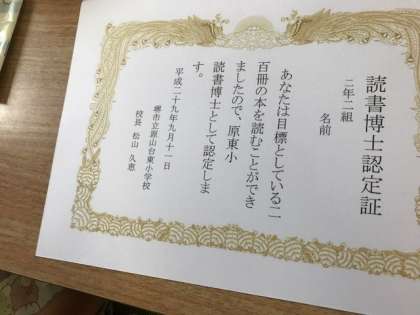 読書博士認定証
二年二組
名前
あなたは目標としている二
百冊の本を読むことができ
ましたので、原東小
読書博士として認定しま
す。
平成二十九年九月十一日
堺市立原山台東小学校
校長 松山 久恵